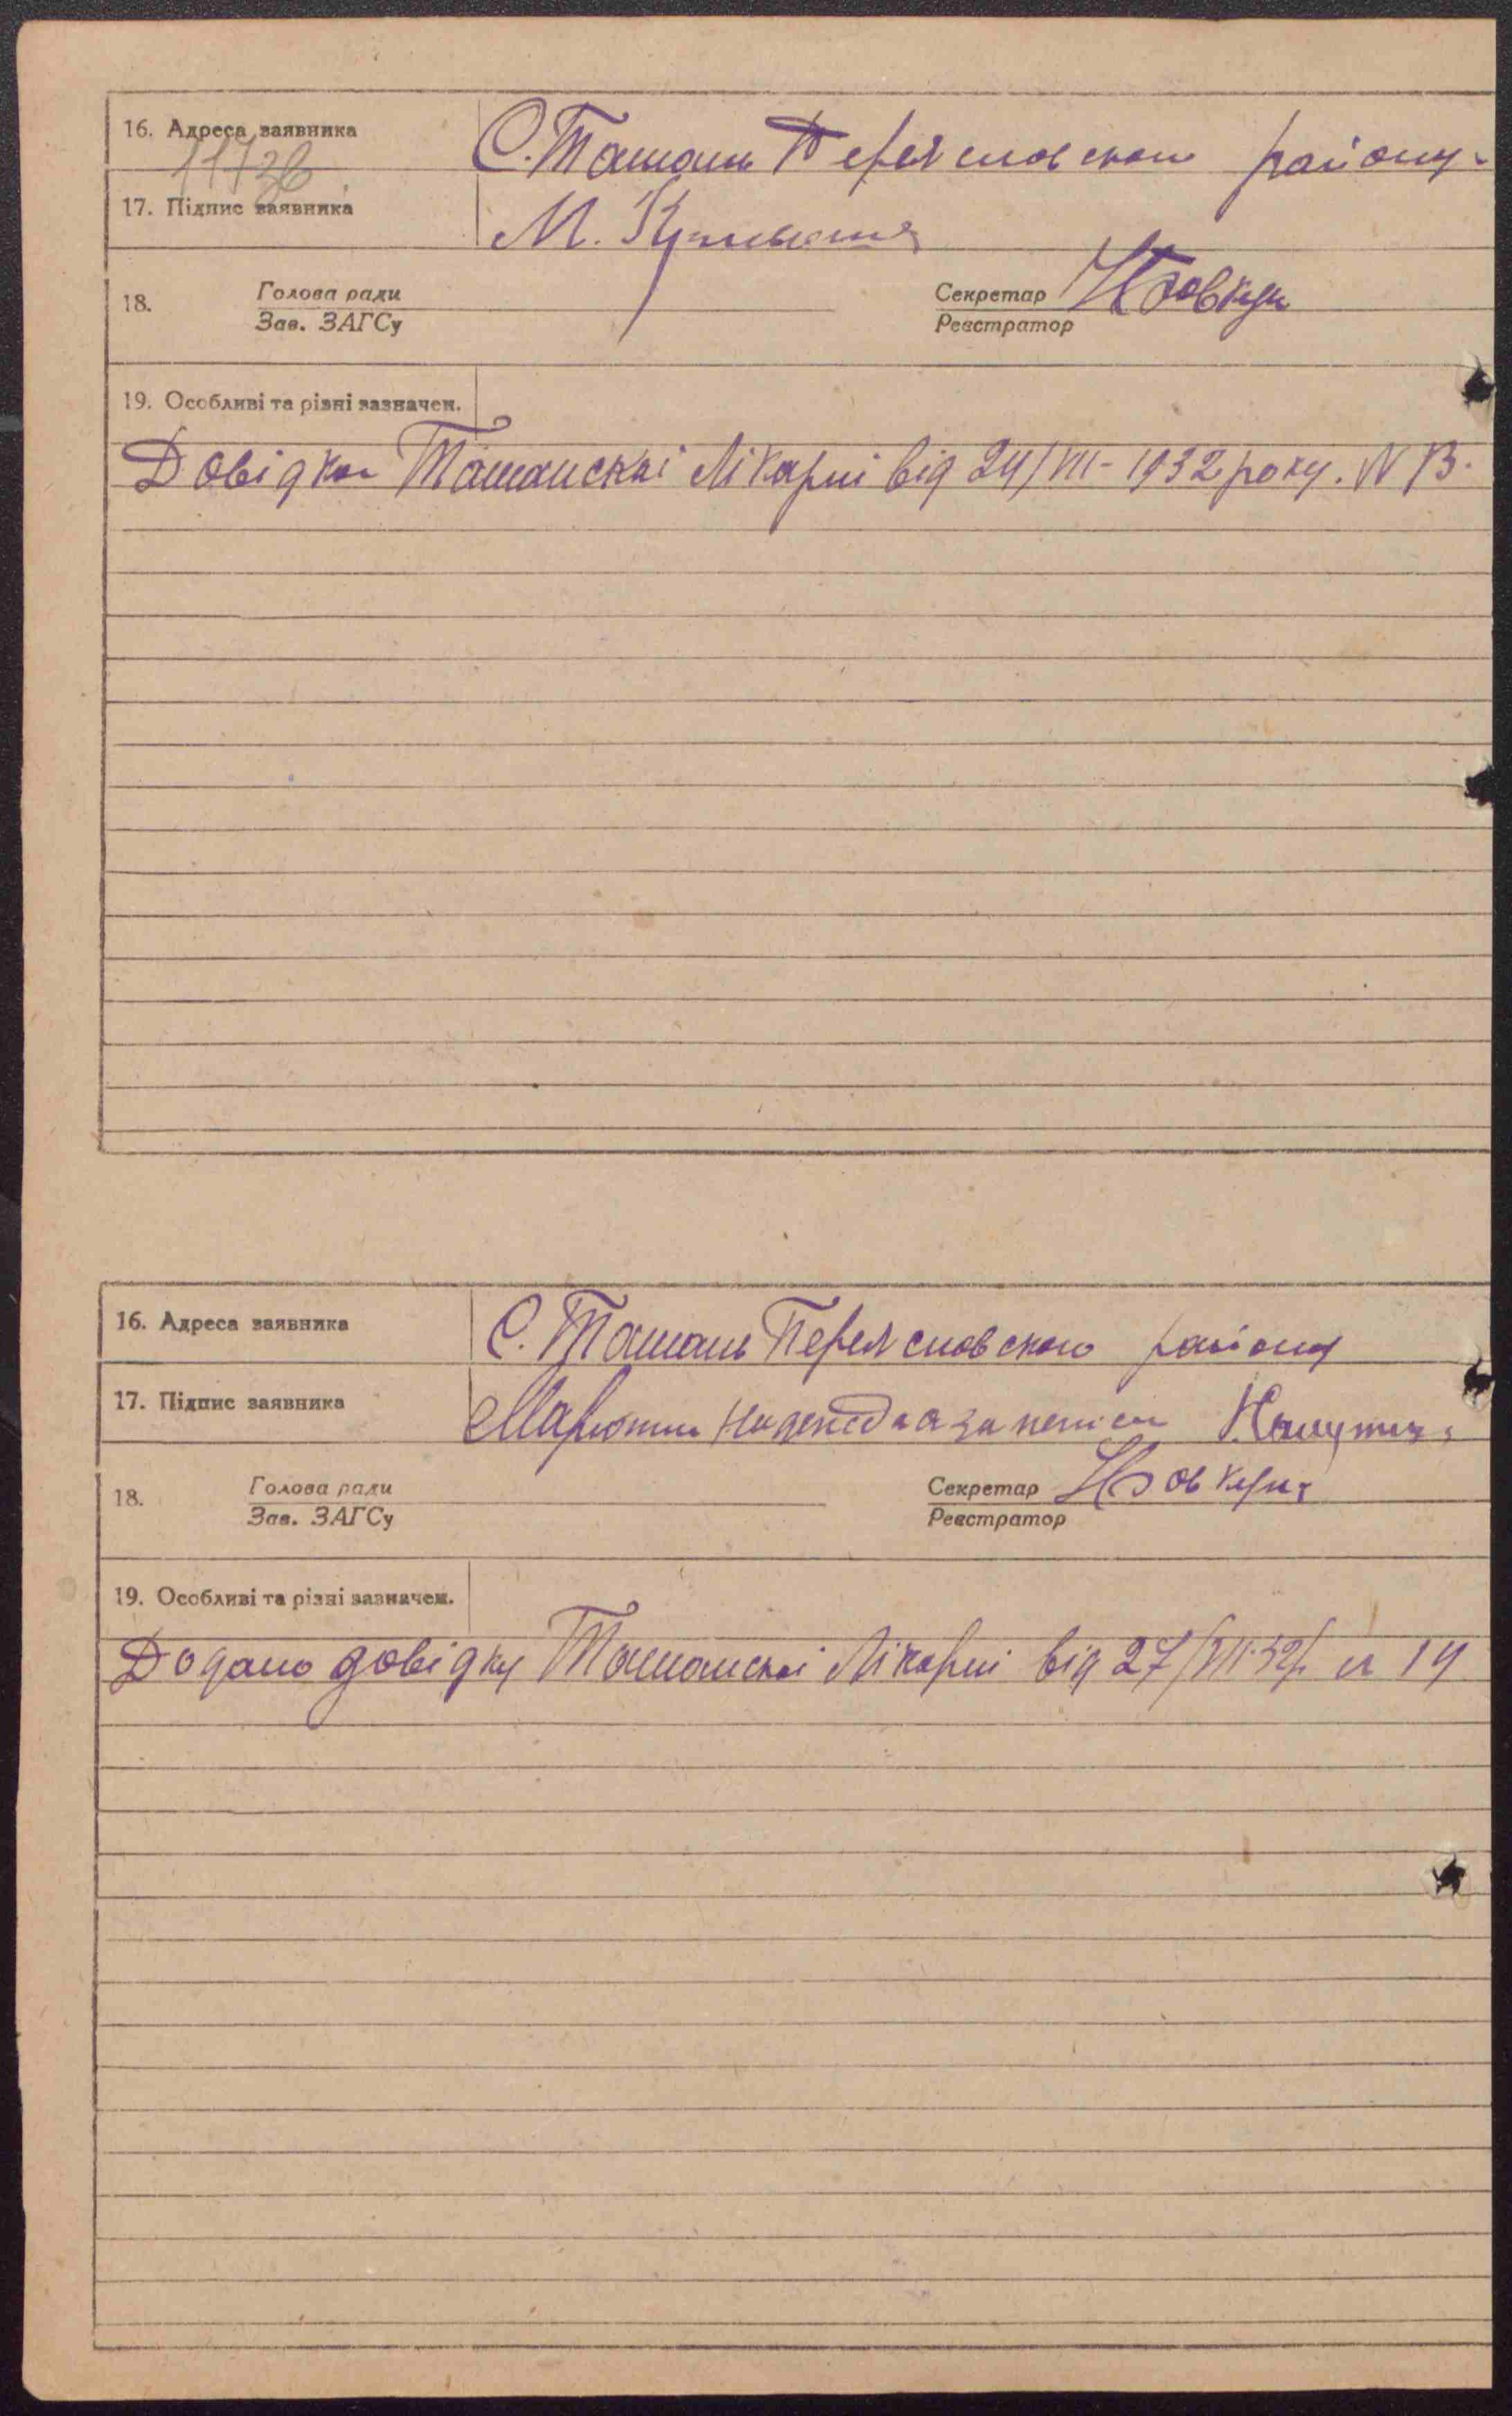 16. Адреса заявника С. Ташань Переясловского району.
17. Підпис заявника М.
18. Голова ради Секретар
Зав. ЗАГСу Реєстратор
19. Особливі та різні зазначен.
Довідка Ташанскаі Лікарні від 24/VII - 1932 року. N 13.
16. Адреса заявника С. Ташань Переясловского району
17. Підпис заявника
18. Голова ради Секретар
Зав. ЗАГСу Реєстратор
19. Особливі та різні зазначен.
Додано довідку Ташанскаі Лікарні від 27/VII-32 р. N 14